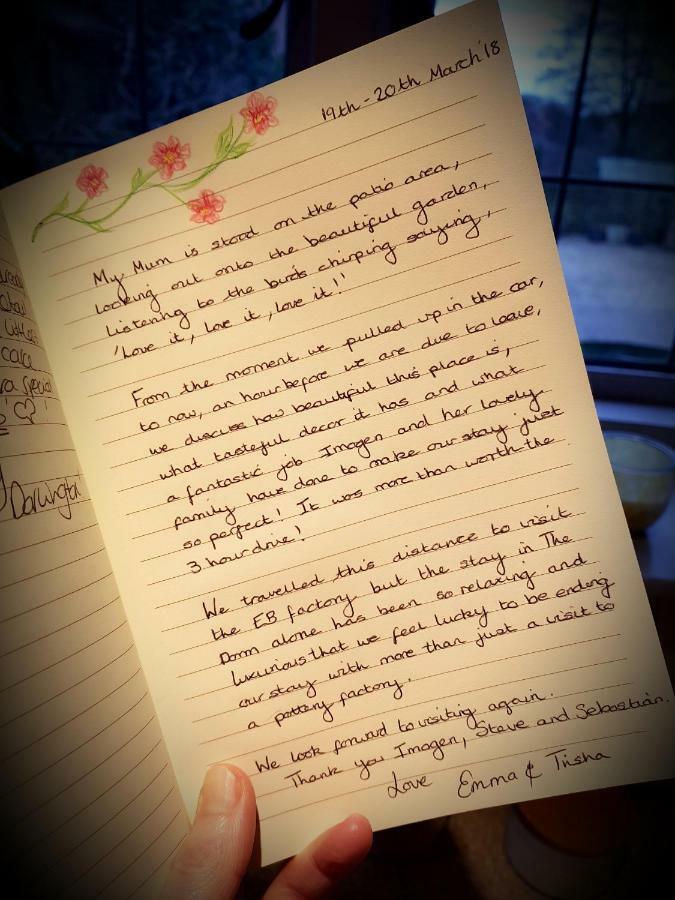 19th - 20th March '18
My Mum is stood on the patio area,
looking out onto the beautiful garden,
listening to the birds chirping saying,
'Love it, love it, love it!'
From the moment we pulled up in the car,
to now, an hour before we are due to leave,
we discuss how beautiful this place is,
what tasteful decor it has and what
a fantastic job Imogen and her lovely
family have done to make our stay just
so perfect! It was more than worth the
3 hour drive!
We travelled this distance to visit
the EB factory but the stay in The
Dorm alone has been so relaxing and
luxurious that we feel lucky to be ending
our stay with more than just a visit to
a pottery factory.
We look forward to visiting again.
Thank you Imogen, Steve and Sebastian.
Love Emma & Trisha
Little
special
Darlington